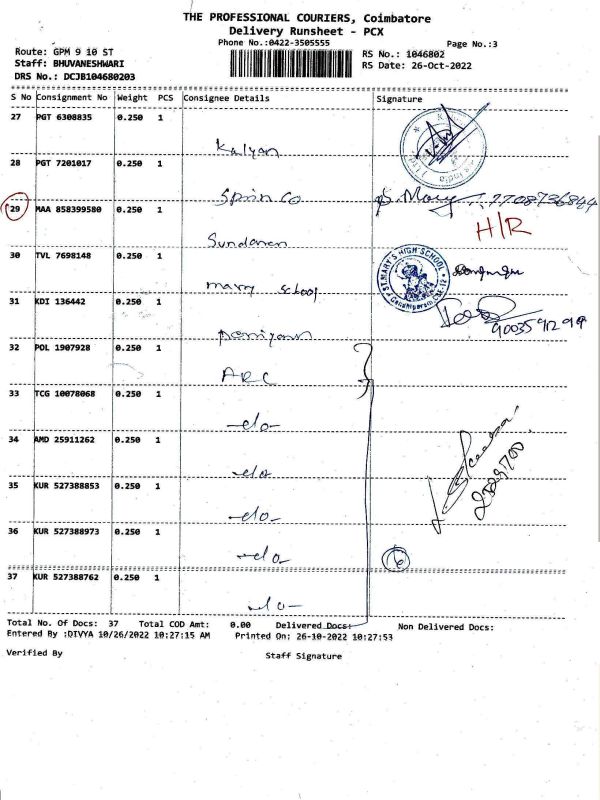 THE PROFESSIONAL COURIERS, Coimbatore
Delivery Runsheet - PCX
Phone No.:0422-3505555
Page No.:3
Route: GPM 9 10 ST
Staff: BHUVANESHWARI
DRS No.: DCJB104680203
RS No.: 1046802
RS Date: 26-Oct-2022
S No Consignment No Weight PCS Consignee Details Signature
27 PGT 6308835 0.250 1
Kalyan
28 PGT 7201017 0.250 1
Spin Co
S. Mary 7708736844
29 MAA 858399580 0.250 1
H/R
Sundaram
30 TVL 7698148 0.250 1
ST.MARY'S HIGH SCHOOL
Gandhipuram CBE-12
mary school
31 KDI 136442 0.250 1
32 POL 1907928 0.250 1
ARC
33 TCG 10078068 0.250 1
-do-
34 AMD 25911262 0.250 1
-do-
35 KUR 527388853 0.250 1
-do-
36 KUR 527388973 0.250 1
-do-
6
37 KUR 527388762 0.250 1
-do-
Total No. Of Docs: 37 Total COD Amt: 0.00 Delivered Docs: Non Delivered Docs:
Entered By :DIVYA 10/26/2022 10:27:15 AM Printed On: 26-10-2022 10:27:53
Verified By Staff Signature